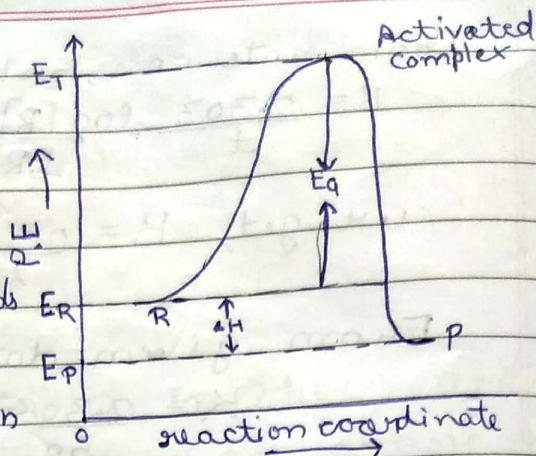 Activated
complex
E_T
Ea
P.E
ds
E_R
R
ΔH
E_P
P
n
0
reaction coordinate